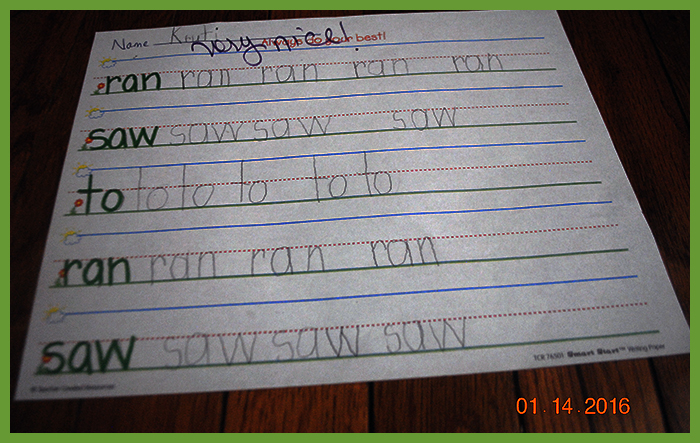 Name
Very nice!
Always do your best!
ran ran ran ran ran
saw saw saw saw
to to to to to to
ran ran ran ran
saw saw saw saw
© Teacher Created Resources
TCR 76501 Smart Start™ Writing Paper
01.14.2016